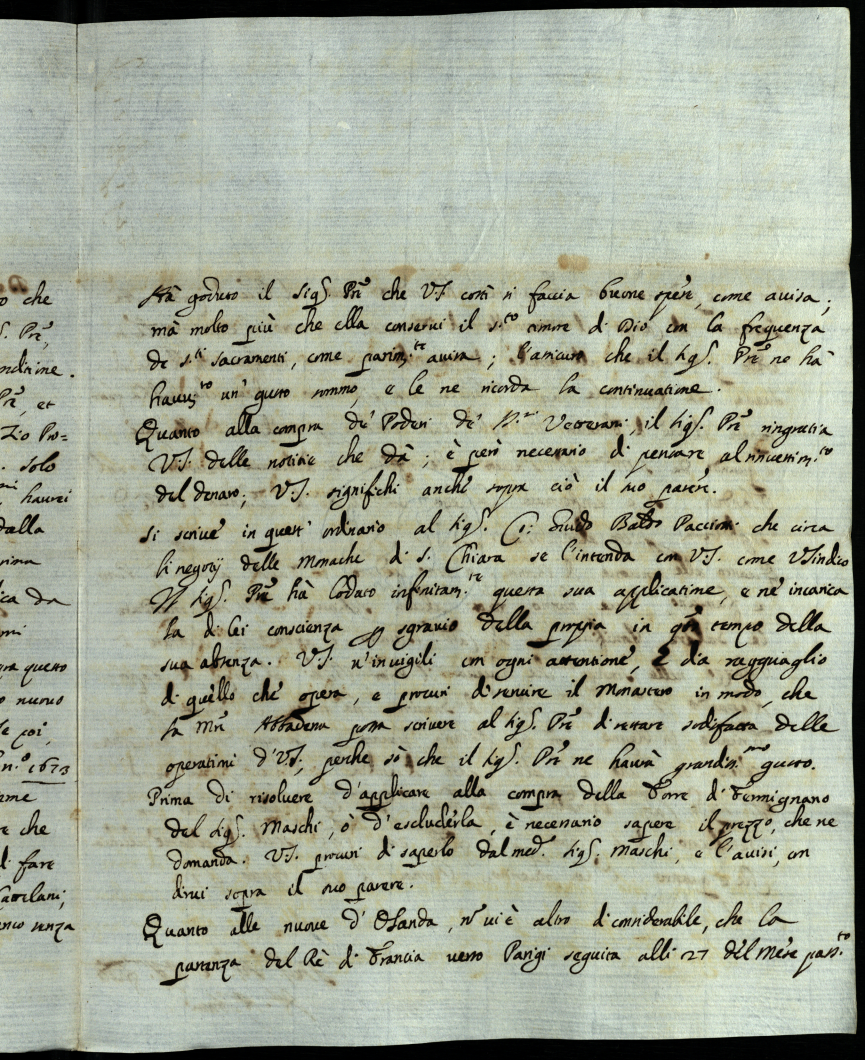 o che
S. Prẽ,
nditine.
Prẽ, et
Zio Pro=
. solo
haurei
dalla
rima
ica da
mi
ra questo
o nuouo
le poi,
n.º 1673
rme
re che
di fare
Catelani;
enco senza
Hà goduto il Sigʳ. Prẽ che VS costì si faccia buone spese, come auisa;
mà molto più che ella conserui il s.ᵗᵒ timore di Dio con la frequenza
de s.ᵗⁱ sacramenti, come parim.ᵗᵉ auisa; l'assicuro che il Sigʳ. Prẽ ne hà
hauut.ᵗᵒ un' gusto sommo, e le ne ricorda la continuatione.
Quanto alla compra de' Poderi de' Veterani, il Sigʳ. Prẽ ringratia
VS. delle notitie che dà; è però necessario di pensare al rinuestim.ᵗᵒ
del denaro; VS. significhi anche sopra ciò il suo parere.
Si scriue in quest' ordinario al Sigʳ. Guido Baldo Paccioni che circa
li negotij delle Monache di S. Chiara se l'intenda con VS. come VS indico
Il Sigʳ. Prẽ hà lodato infinitam.ᵗᵉ questa sua applicatione, e ne incarica
la di lei conscienza p sgrauio della propria in qto tempo della
sua absenza. VS. u'inuigili con ogni attentione, e dia ragguaglio
di quello che opera, e procuri di seruire il Monastero in modo, che
la Mrẽ Abbadessa possa scriuere al Sigʳ. Prẽ di restare sodisfatta delle
operationi d'VS; perche sò che il Sigʳ. Prẽ ne haurà grandiss.ᵐᵒ gusto.
Prima di risoluere d'applicare alla compra della Torre di Fermignano
del Sigʳ. Maschi, ò d'escluderla, è necessario sapere il prezzo, che ne
domanda. VS. procuri di saperlo dal med.º Sigʳ. Maschi, e l'auisi, con
dirui sopra il suo parere.
Quanto alle nuoue d'Olanda, nõ ui è altro di considerabile, che la
partenza del Rè di Francia uerso Parigi seguita alli 27 del Mese pass.ᵗᵒ